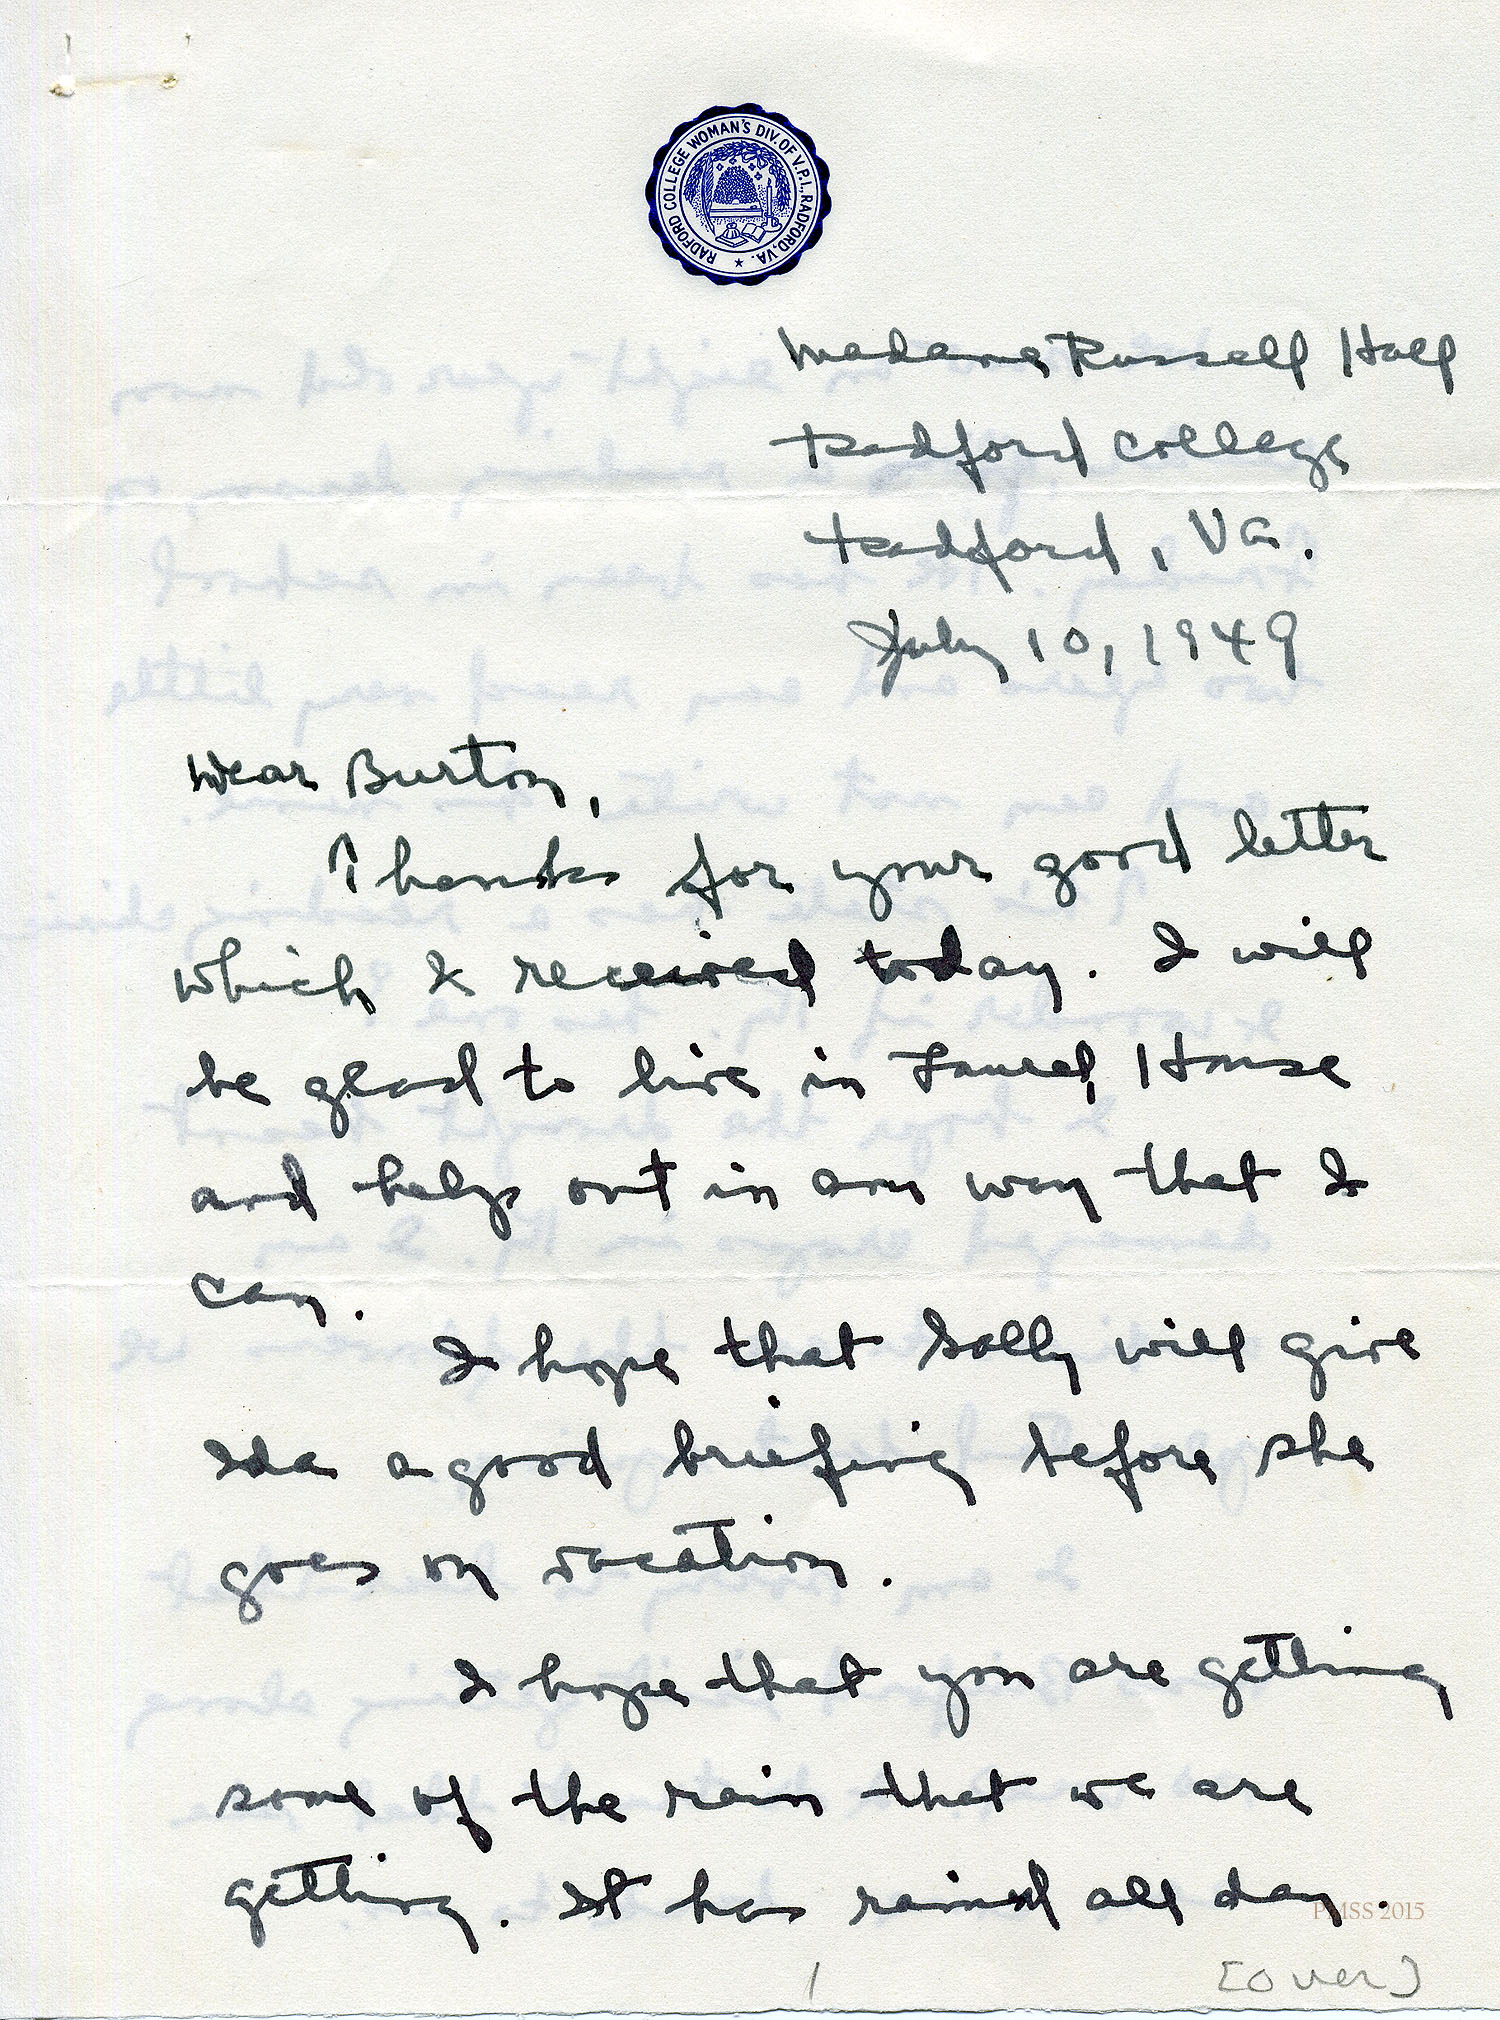 RADFORD COLLEGE WOMAN'S DIV. OF V.P.I., RADFORD, VA.
Madame Russell Hall
Radford College
Radford, Va.
July 10, 1949
Dear Burton,
Thanks for your good letter
which I received today. I will
be glad to live in Laurel House
and help out in any way that I
can.
I hope that Sally will give
Ida a good briefing before she
goes on vacation.
I hope that you are getting
some of the rain that we are
getting. It has rained all day.
PMSS 2015
1 [over]